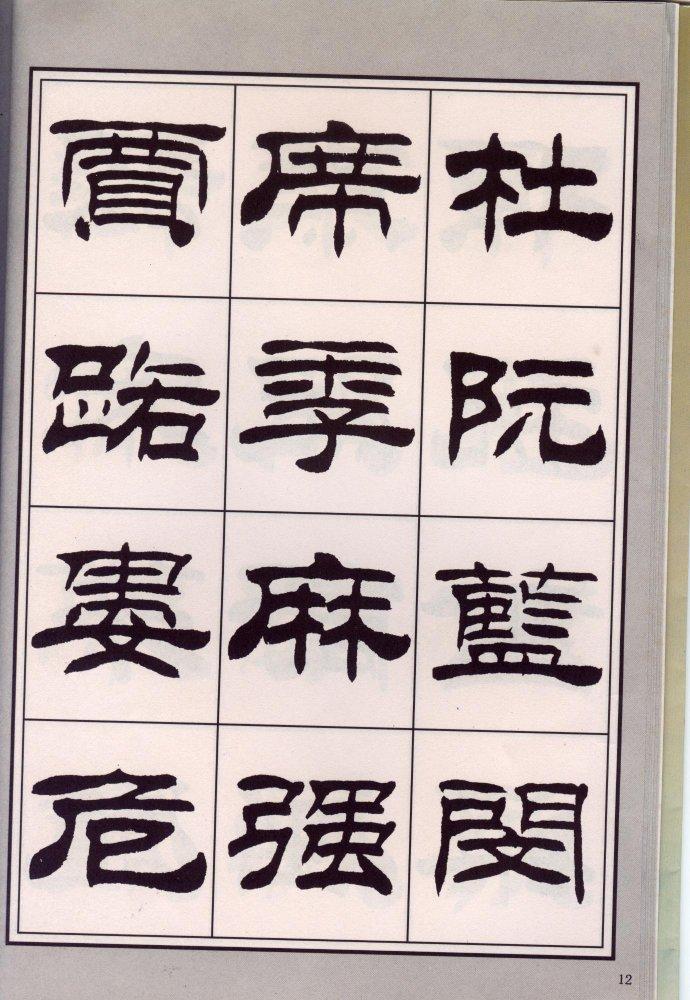 杜阮藍閔
席季麻强
賈路婁危
12